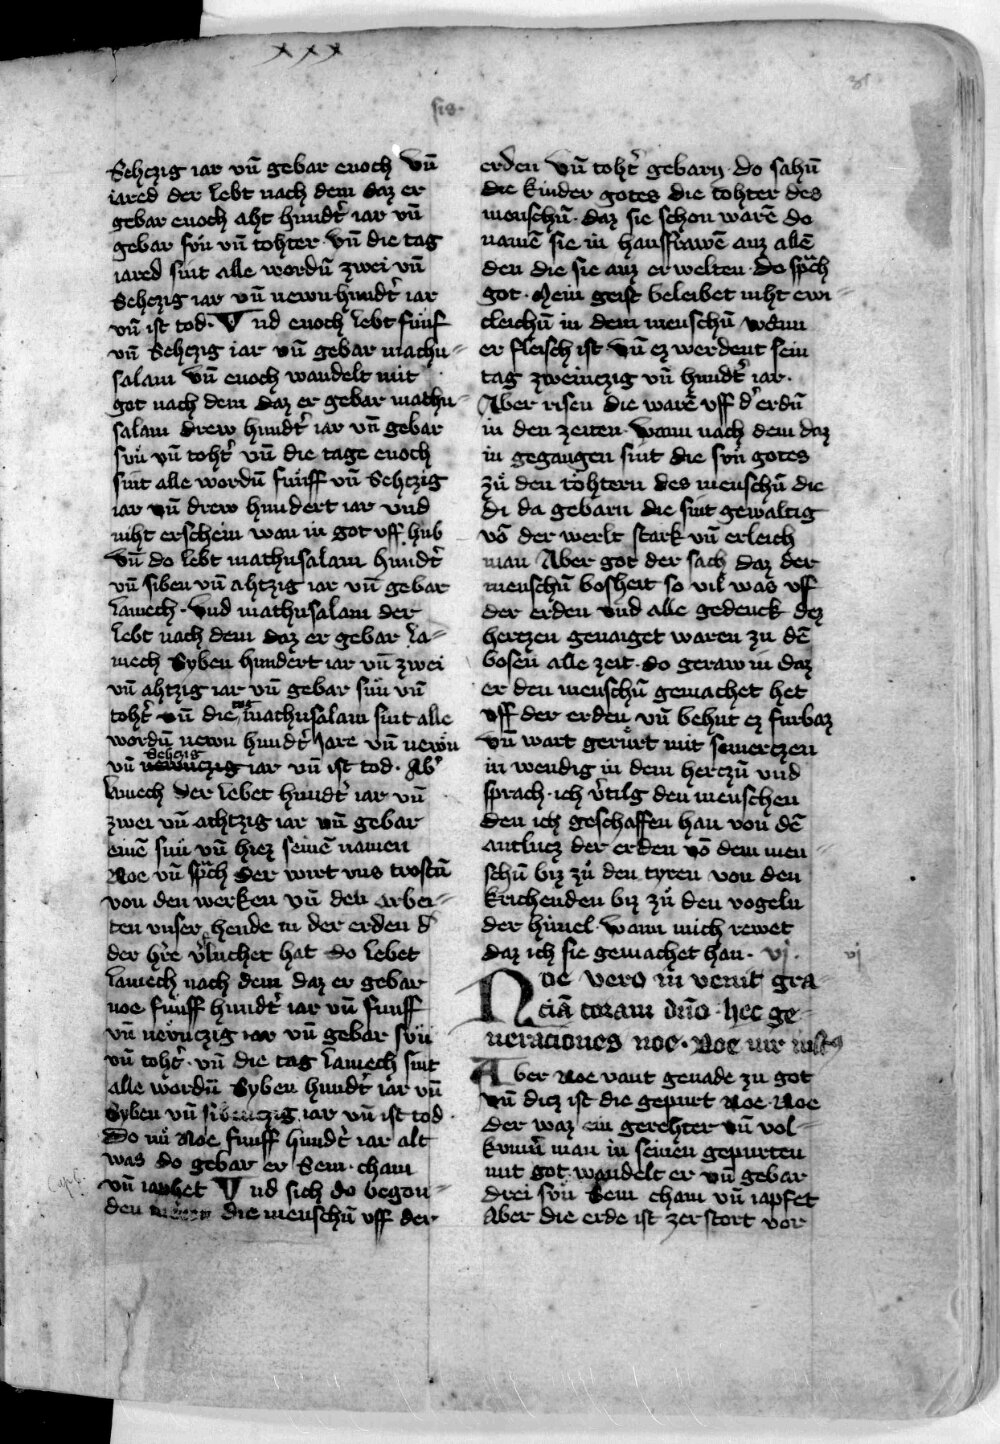 xxx
31
sis.
Sehczig iar vn̄ gebar enoch Vn̄
iared der lebt nach dem daz er
gebar enoch aht hundt̄ iar vn̄
gebar sün vn̄ tohter vn̄ die tag
iared sint alle wordn̄ zwei vn̄
Sehczig iar vn̄ newn hundt̄ iar
vn̄ ist tod· Vnd enoch lebt funf
vn̄ Sehczig iar vn̄ gebar mathu-
salam vn̄ enoch wandelt mit
got nach dem daz er gebar mathu-
salam drew hundt̄ iar vn̄ gebar
sün vn̄ toht̄ vn̄ die tage enoch
sint alle wordn̄ funff vn̄ Sehczig
iar vn̄ drew hundert iar vnd
niht erschein wan in got vff hub
Vn̄ do lebt mathusalam hundt̄
vn̄ siben vn̄ ahtzig iar vn̄ gebar
lamech· Vnd mathusalam der
lebt nach dem daz er gebar la-
mech Syben hundert iar vn̄ zwei
vn̄ ahtzig iar vn̄ gebar sün vn̄
toht̄ vn̄ die tag mathusalam sint alle
wordn̄ newn hundt̄ Jare vn̄ newn
vn̄ newnczig Sehczig iar vn̄ ist tod· Ab̄
lamech der lebet hundt̄ iar vn̄
zwei vn̄ achtzig iar vn̄ gebar
einē sun vn̄ hiez seinē namen
Noe vn̄ sp̄ch der wirt vns trostn̄
von den werken vn̄ den arbei-
ten vnser hende in der erden d̄
der h̄re v̄luchet hat do lebet
lamech nach dem daz er gebar
noe funff hundt̄ iar vn̄ funff
vn̄ newnczig iar vn̄ gebar sün
vn̄ toht̄· vn̄ die tag lamech sint
alle wordn̄ Syben hundt̄ iar vn̄
Syben vn̄ sibenczig iar vn̄ ist tod·
Do nu Noe funff hundt̄ iar alt
was do gebar er Sem· cham
vn̄ iaphet Vnd sich do begon-
den die menschn̄ vff der
erden vn̄ toht̄ gebarn· do sahn̄
die kinder gotes die tohter des
menschn̄· daz sie schon warē do
namē sie in hausfrawē auz allē
den die sie auz erwelten· do sp̄ch
got· Mein geist beleibet niht ewi-
cleichn̄ in dem menschn̄ wann
er fleisch ist vn̄ ez werdent sein
tag zweinczig vn̄ hundt̄ iar·
Aber risen die warē vff d̄ erdn̄
in den zeiten· wann nach dem daz
in gegangen sint die sün gotes
zu den töhtern des menschn̄ die
di da gebarn die sint gewaltig
vō der werlt stark vn̄ erleich
man Aber got der sach daz der
menschn̄ bosheit so vil was vff
der erden vnd alle gedenck dez
hertzen genaiget waren zu dē
bosen alle zeit· do geraw in daz
er den menschn̄ gemachet het
vff der erden vn̄ behut ez furbaz
vn̄ wart gerürt mit smertzen
in wendig in dem herczn̄ vnd
sprach· ich v̄tilg den menschen
den ich geschaffen han von dē
antlucz der erden vō dem men-
schn̄ biz zu den tyren von den
krichenden biz zu den vogeln
der himel· wann mich rewet
daz ich sie gemachet han· vj·
vj
Noe vero in venit gra-
ciā coram dn̄o· hec ge-
neraciones noe· Noe vir iustus
Aber Noe vant genade zu got
vn̄ dicz ist die gepurt Noe· Noe
der waz ein gerehter vn̄ vol-
kumn̄ man in seinen gepurten
mit got wandelt er vn̄ gebar
drei sün Sem cham vn̄ iapfet
Aber die erde ist zerstort vor